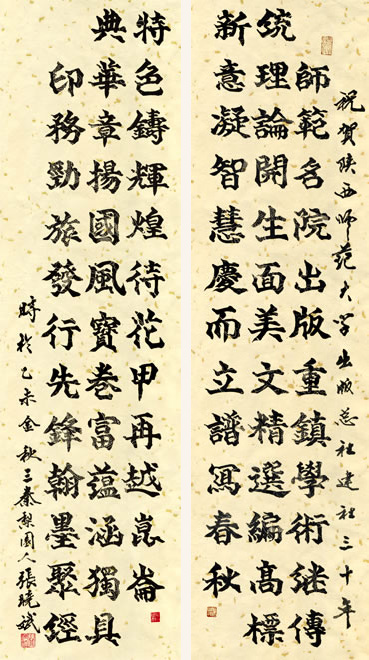 祝賀陝西師范大學出版总社建社三十年
師範名院出版重鎮學術继傳
统理論開生面美文精選編高標
新意凝智慧慶而立譜寫春秋
印務勁旅發行先鋒翰墨聚經
典華章揚國風寶卷富蕴涵獨具
特色鑄輝煌待花甲再越崑崙
時於乙未金秋三秦梨園人張曉斌